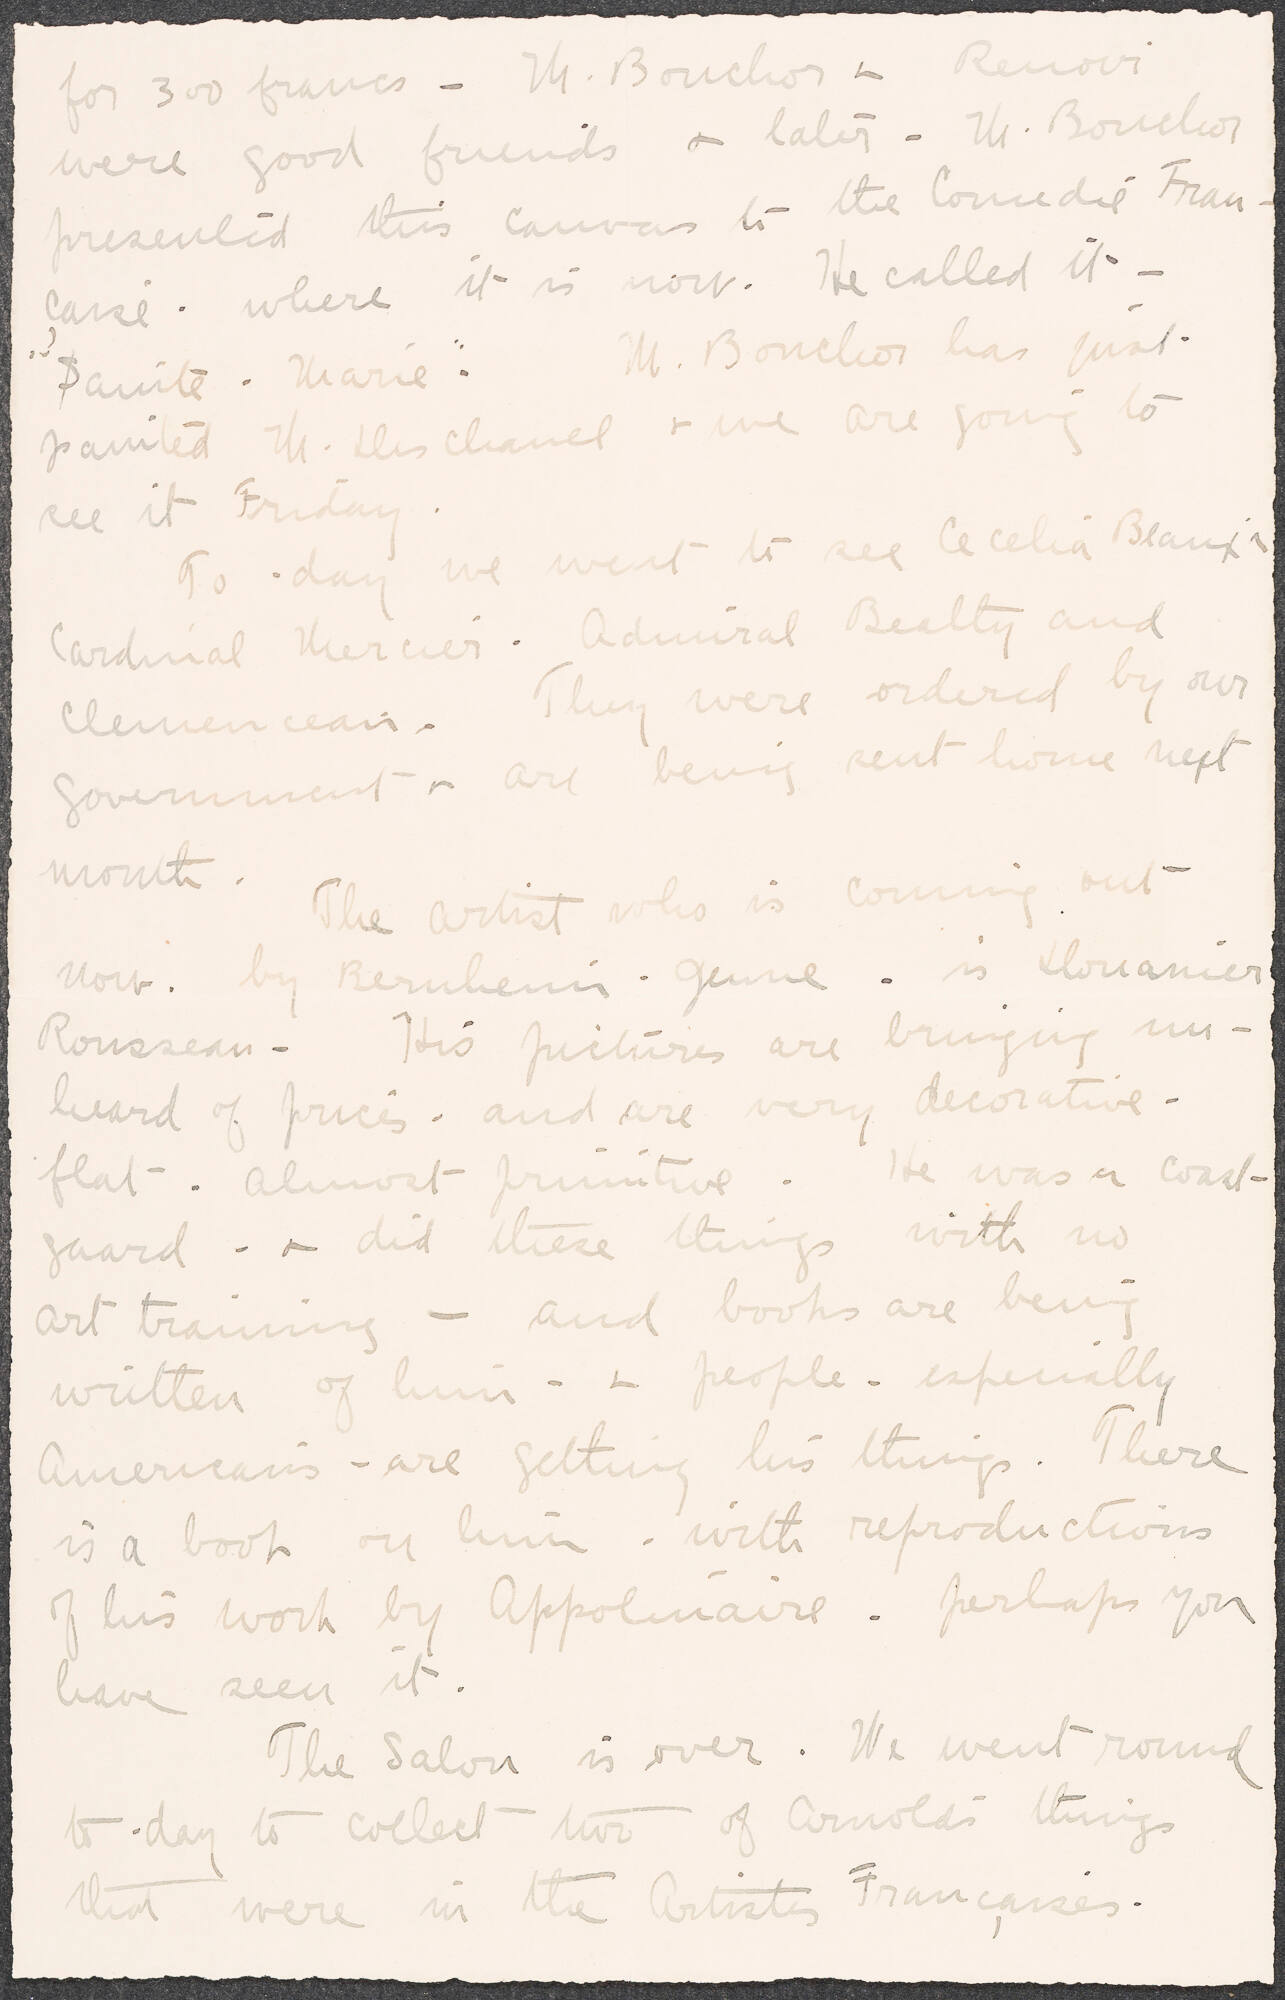 for 300 francs - M. Bouchor + Renoir
were good friends + later - M. Bouchor
presented this canvas to the Comedie Fran-
caise. where it is now. He called it -
Marie". M. Bouchor has just
painted M. Deschanel + we are going to
see it Friday.
To-day we went to see Cecelia Beaux's
Cardinal Mercier. Admiral Beatty and
Clemenceau. They were ordered by our
government + are being sent home next
month.
The artist who is coming out
now. by Bernheim. Jeune. is Douanier
Rousseau - His pictures are bringing un-
heard of prices. and are very decorative -
flat. almost primitive. He was a coast-
guard - + did these things with no
art training - and books are being
written of him - + people - especially
Americans - are getting his things. There
is a book on him. with reproductions
of his work by Appolinaire. perhaps you
have seen it.
The Salon is over. We went round
to-day to collect two of Arnolds things
that were in the Artistes Françaises.